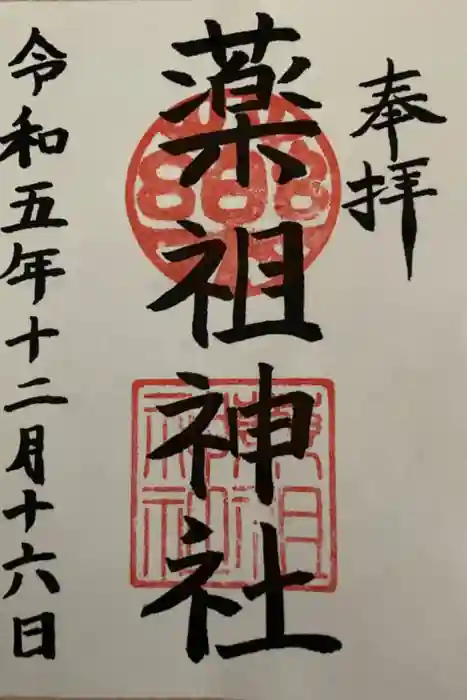 奉拝
薬祖神社
令和五年十二月十六日